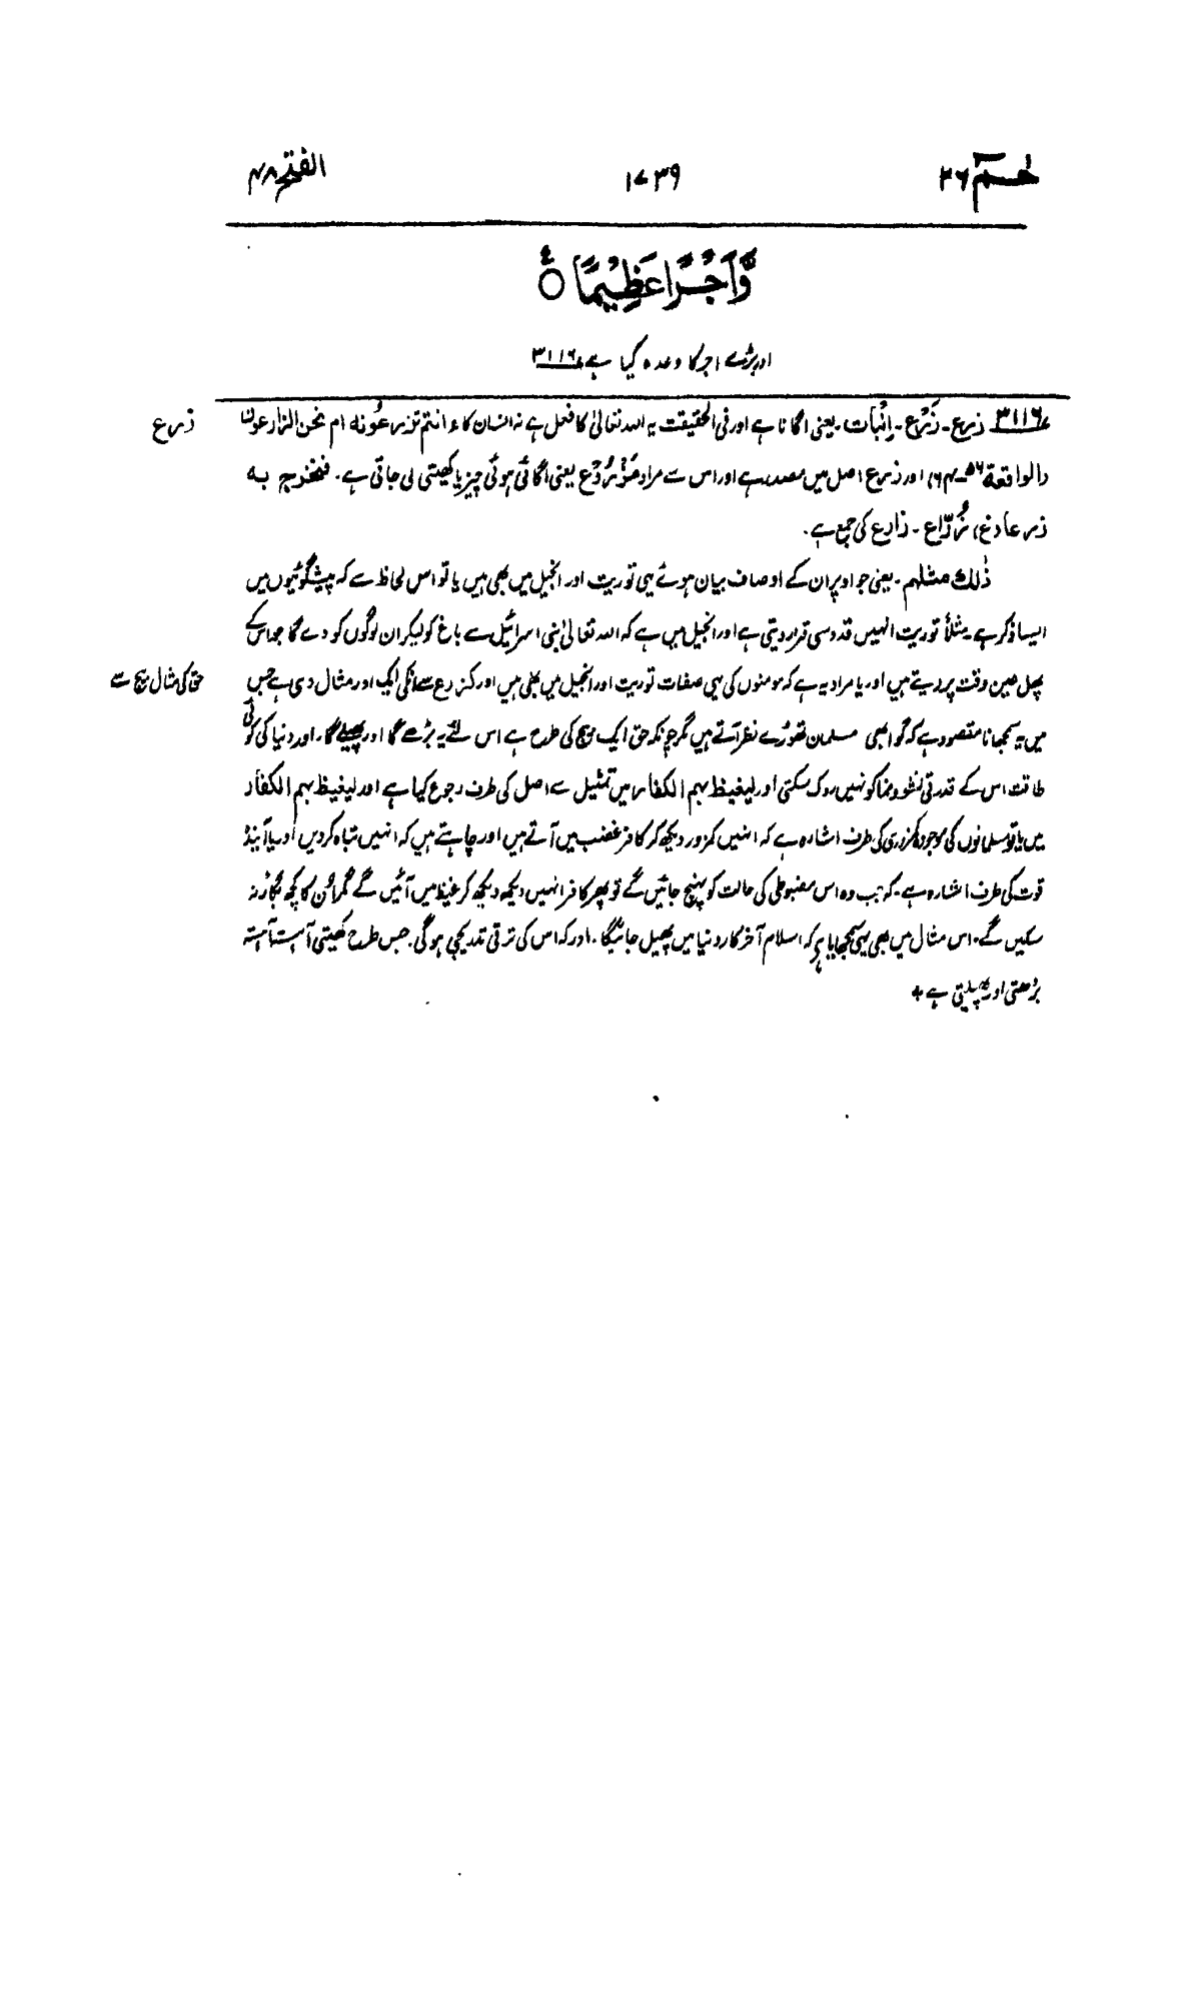 حٰم ۲۶
۱۷۳۹
الفتح ۴۸
وَّاَجْرًا عَظِيْمًا ۝
اور بڑے اجر کا وعدہ کیا ہے ۳۱۱۶
۳۱۱۶ زرع۔ زَرْع۔ اِنْبات۔ یعنی اگانا ہے اور فی الحقیقت یہ اللہ تعالیٰ کا فعل ہے نہ انسان کا ءانتم تزرعُونہ ام نحن الزارعون
زرع
(الواقعۃ ۵۶۔ ۶۴) اور زرع اصل میں مصدر ہے اور اس سے مراد مَزْرُوْع یعنی اگائی ہوئی چیز یا کھیتی لی جاتی ہے۔ فنخرج بہ
زرعا (۔ زُرّاع۔ زارع کی جمع ہے۔
ذٰلک مثلہم۔ یعنی جو اوپر ان کے اوصاف بیان ہوئے یہی توریت اور انجیل میں بھی ہیں یا تو اس لحاظ سے کہ پیشگوئیوں میں
ایسا ذکر ہے مثلاً توریت انہیں قدوسی قرار دیتی ہے اور انجیل میں ہے کہ اللہ تعالیٰ بنی اسرائیل سے باغ کو لیکر ان لوگوں کو دے گا جو اس کے
پھل عین وقت پر دیتے ہیں اور یا مراد یہ ہے کہ مومنوں کی یہی صفات توریت اور انجیل میں بھی ہیں اور کزرع سے انکی ایک اور مثال دی ہے جس
حق کی مثال بیج سے
میں یہ سمجھانا مقصود ہے کہ گو ابھی مسلمان تھوڑے نظر آتے ہیں مگر چونکہ حق ایک بیج کی طرح ہے اس لئے یہ بڑھے گا اور پھیلے گا۔ اور دنیا کی کوئی
طاقت اس کے قدرتی نشوونما کو نہیں روک سکتی اور لیغیظ بہم الکفار میں تمثیل سے اصل کی طرف رجوع کیا ہے اور لیغیظ بہم الکفار
میں یا تو مسلمانوں کی موجودہ کمزوری کی طرف اشارہ ہے کہ انہیں کمزور دیکھ کر کافر غضب میں آتے ہیں اور چاہتے ہیں کہ انہیں تباہ کردیں اور یا آیندہ
قوت کی طرف اشارہ ہے۔ کہ جب وہ اس مضبوطی کی حالت کو پہنچ جائیں گے تو پھر کافر انہیں دیکھ دیکھ کر غیظ میں آئیں گے مگر ان کا کچھ بگاڑ نہ
سکیں گے۔ اس مثال میں بھی یہی سمجھایا ہے کہ اسلام آخر کار دنیا میں پھیل جائیگا۔ اور کہ اس کی ترقی تدریجی ہوگی۔ جس طرح کھیتی آہستہ آہستہ
بڑھتی اور پھیلتی ہے +